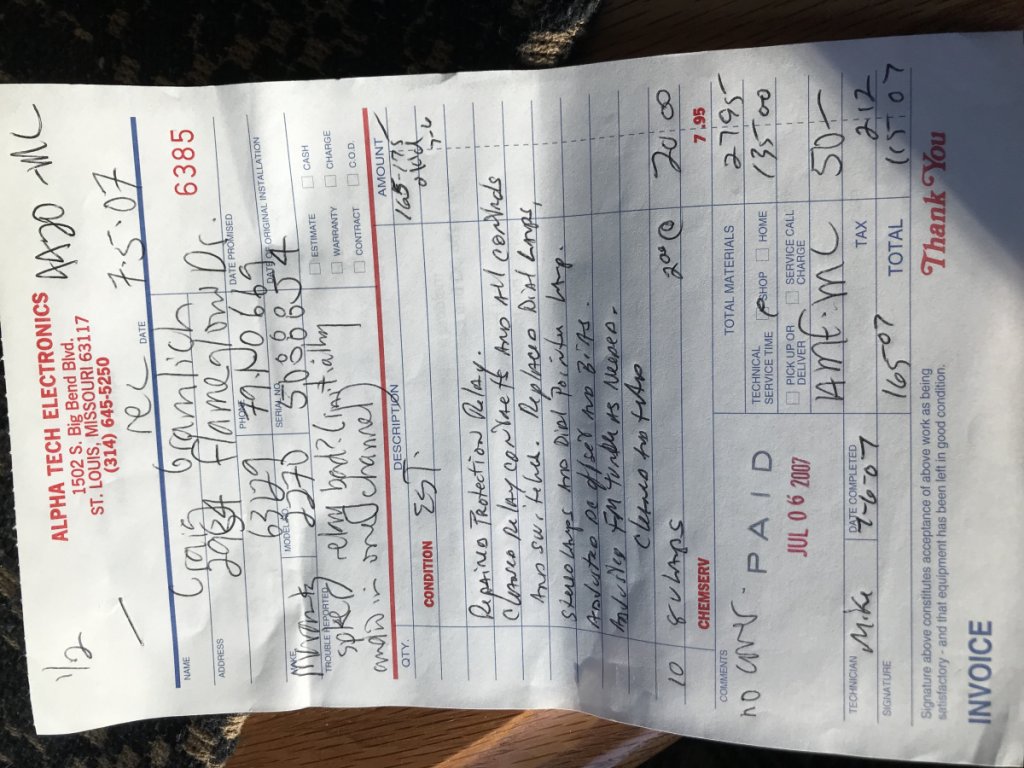 1/2
APPD MC
ALPHA TECH ELECTRONICS
1502 S. Big Bend Blvd.
ST. LOUIS, MISSOURI 63117
(314) 645-5250
DATE 7-5-07
6385
NAME Craig
ADDRESS
DATE PROMISED
63129
PHONE
DATE OF ORIGINAL INSTALLATION
MAKE
MODEL NO. 2270
SERIAL NO.
TROUBLE REPORTED
ESTIMATE CASH
WARRANTY CHARGE
CONTRACT C.O.D.
QTY. DESCRIPTION AMOUNT
CONDITION EST. 165-175
Repaired Protection Relay.
Cleaned Relay contacts and all controls
and switches. Replaced Dial lamps,
Stereo lamps and Dial Pointer lamp.
Adjusted DC offset and BIAS.
FM as Needed.
10 8V LAMPS 2.00 @ 20 00
CHEMSERV 7.95
COMMENTS
TOTAL MATERIALS 27.95
TECHNICAL SERVICE TIME SHOP HOME 135 00
PAID
JUL 06 2007
PICK UP OR DELIVER SERVICE CALL CHARGE
AMT. MC 50-
TECHNICIAN Mike
DATE COMPLETED
TAX 2 12
SIGNATURE
165 07
TOTAL 115 07
Signature above constitutes acceptance of above work as being
satisfactory - and that equipment has been left in good condition.
INVOICE
Thank You